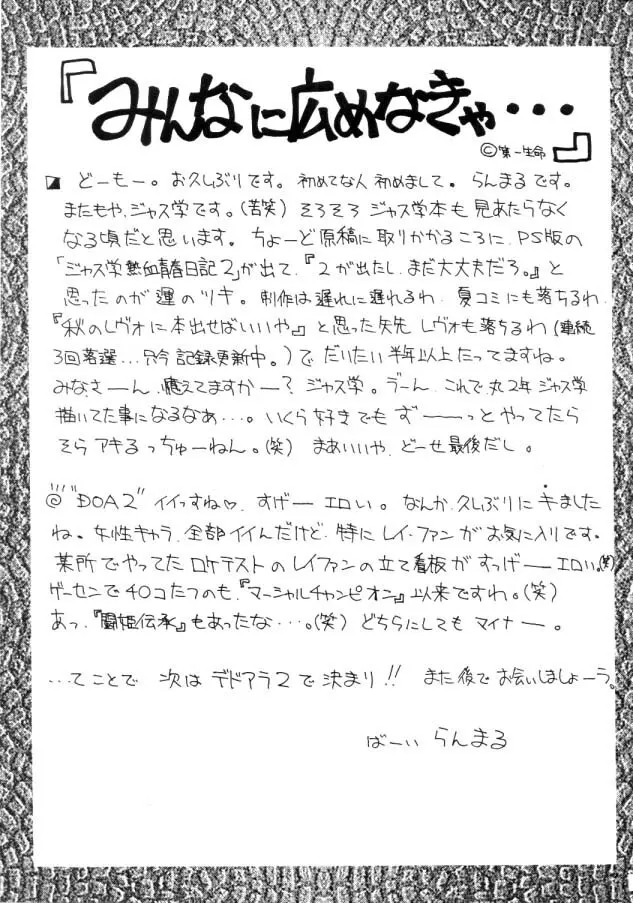 『みんなに広めなきゃ・・・』
©第一生命
どーもー。お久しぶりです。初めてな人初めまして。らんまるです。
またもや、ジャス学です。(苦笑)そろそろジャス学本も見あたらなく
なる頃だと思います。ちょーど原稿に取りかかるころに、PS版の
「ジャス学熱血青春日記2」が出て、『2が出たし、まだ大丈夫だろ。』と
思ったのが運のツキ。制作は遅れに遅れるわ、夏コミにも落ちるわ、
『秋のレヴォに本出せばいいや』と思った矢先レヴォも落ちるわ(連続
3回落選…只今記録更新中。)で だいたい半年以上たってますね。
みなさーん、燃えてますかー?ジャス学。うーん、これで、丸2年ジャス学
描いてた事になるなあ…。いくら好きでもずーーーっとやってたら
そらアキるっちゅーねん。(笑) まあいいや、どーせ最後だし。
@"DOA2"イイっすね♡、すげーエロい。なんか、久しぶりにキました
ね。女性キャラ、全部イイんだけど、特にレイ・ファンがお気に入りです。
某所でやってたロケテストのレイファンの立て看板がすっげーエロい。(笑)
ゲーセンで40コたつのも、『マーシャルチャンピオン』以来ですわ。(笑)
あっ、『闘姫伝承』もあったな・・・。(笑)どちらにしてもマイナー。
…てことで 次はデドアラ2で決まり!! また後でお会いしましょーう。
ばーい らんまる